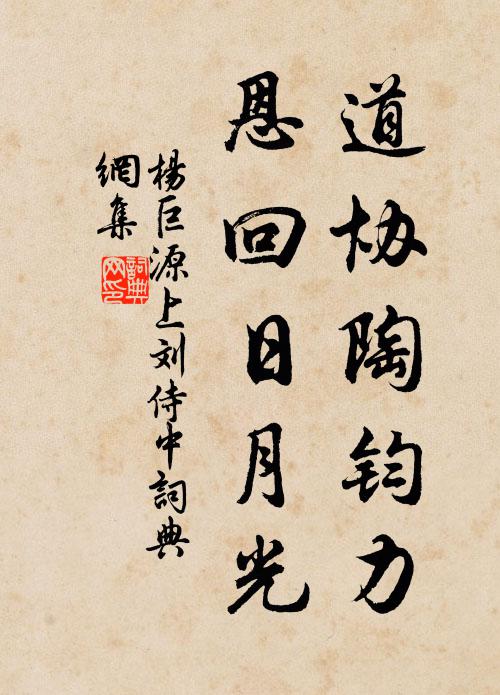 道协陶钧力
恩回日月光
杨巨源上刘侍中詞典
網集
詞典
网印